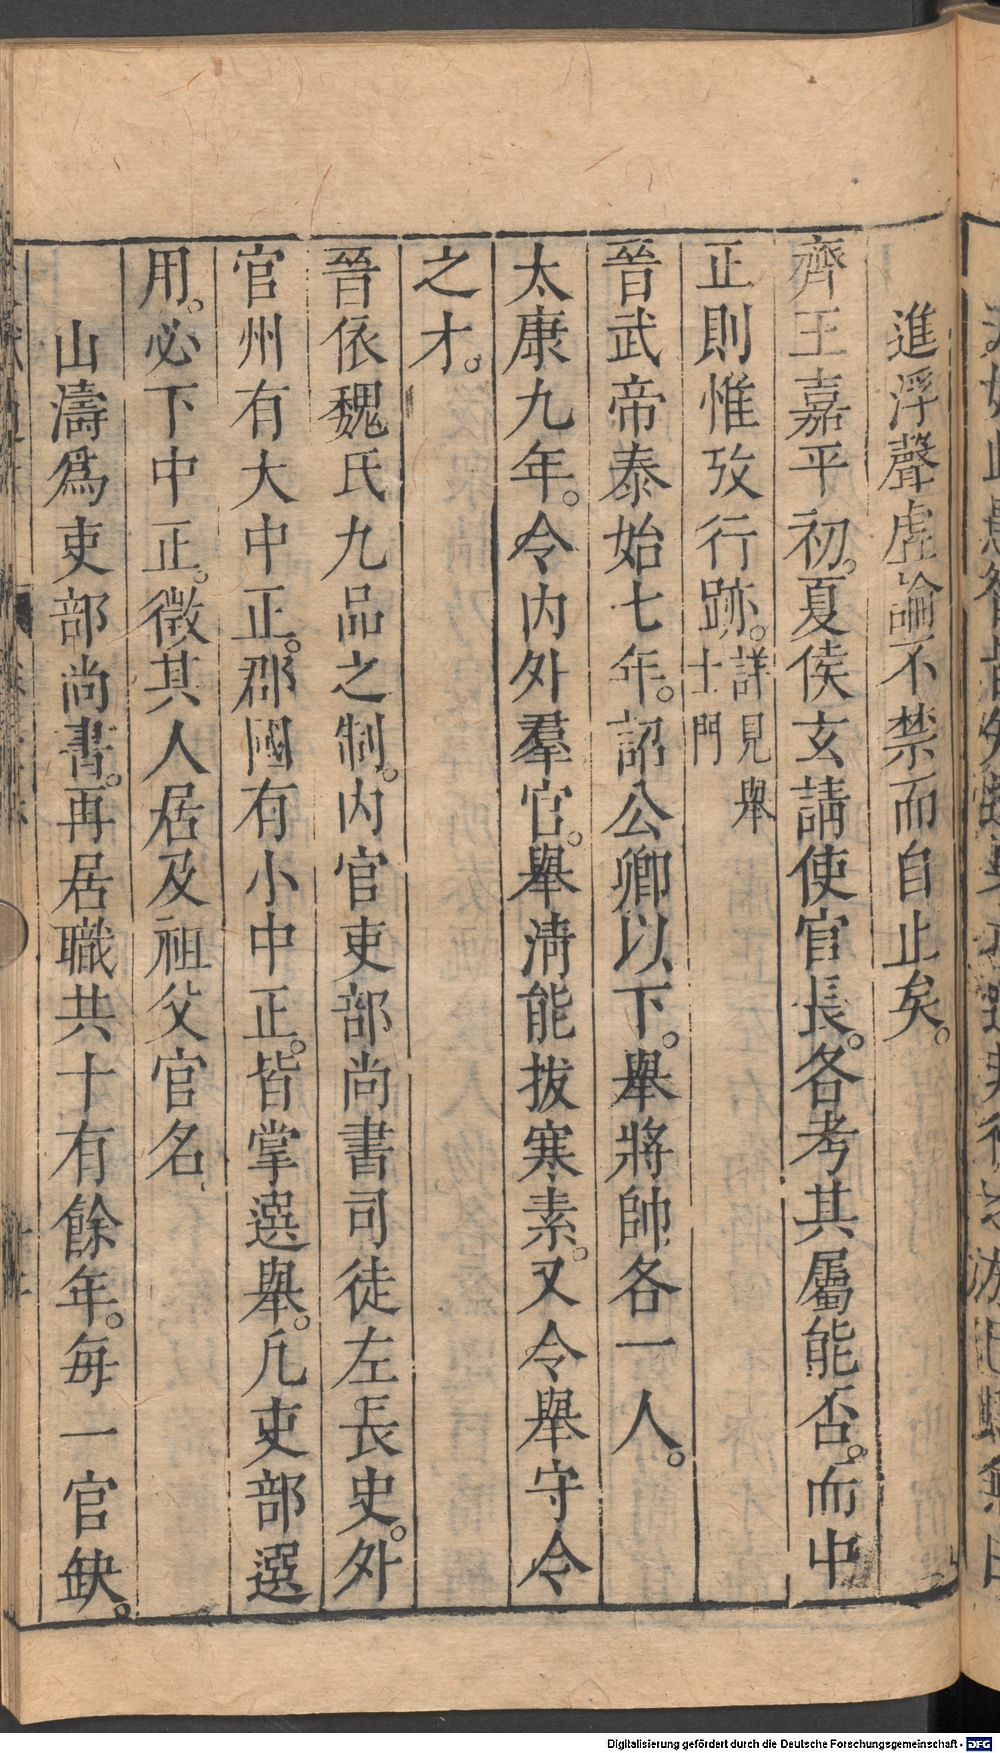 進浮聲虛論不禁而自止矣。
齊王嘉平初。夏侯玄請使官長。各考其屬能否。而中
正則惟攷行跡。詳見舉士門
晉武帝泰始七年。詔公卿以下。舉將帥各一人。
太康九年。令內外羣官。舉淸能拔寒素。又令舉守令
之才。
晉依魏氏九品之制。內官吏部尚書司徒左長史。外
官州有大中正。郡國有小中正。皆掌選舉。凡吏部選
用。必下中正。徵其人居及祖父官名
山濤爲吏部尚書。再居職共十有餘年。每一官缺。
Digitalisierung gefördert durch die Deutsche Forschungsgemeinschaft - DFG